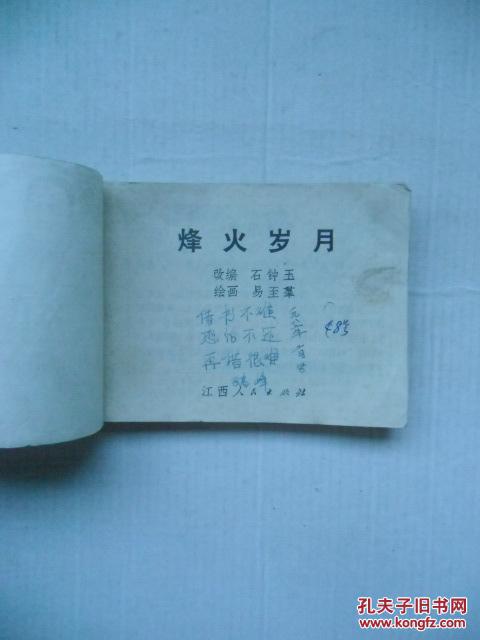 烽火岁月
改编 石钟玉
绘画 易至羣
借书不难
恐怕不还
再借很难
48号
江西人民出版社
孔夫子旧书网
www.kongfz.com